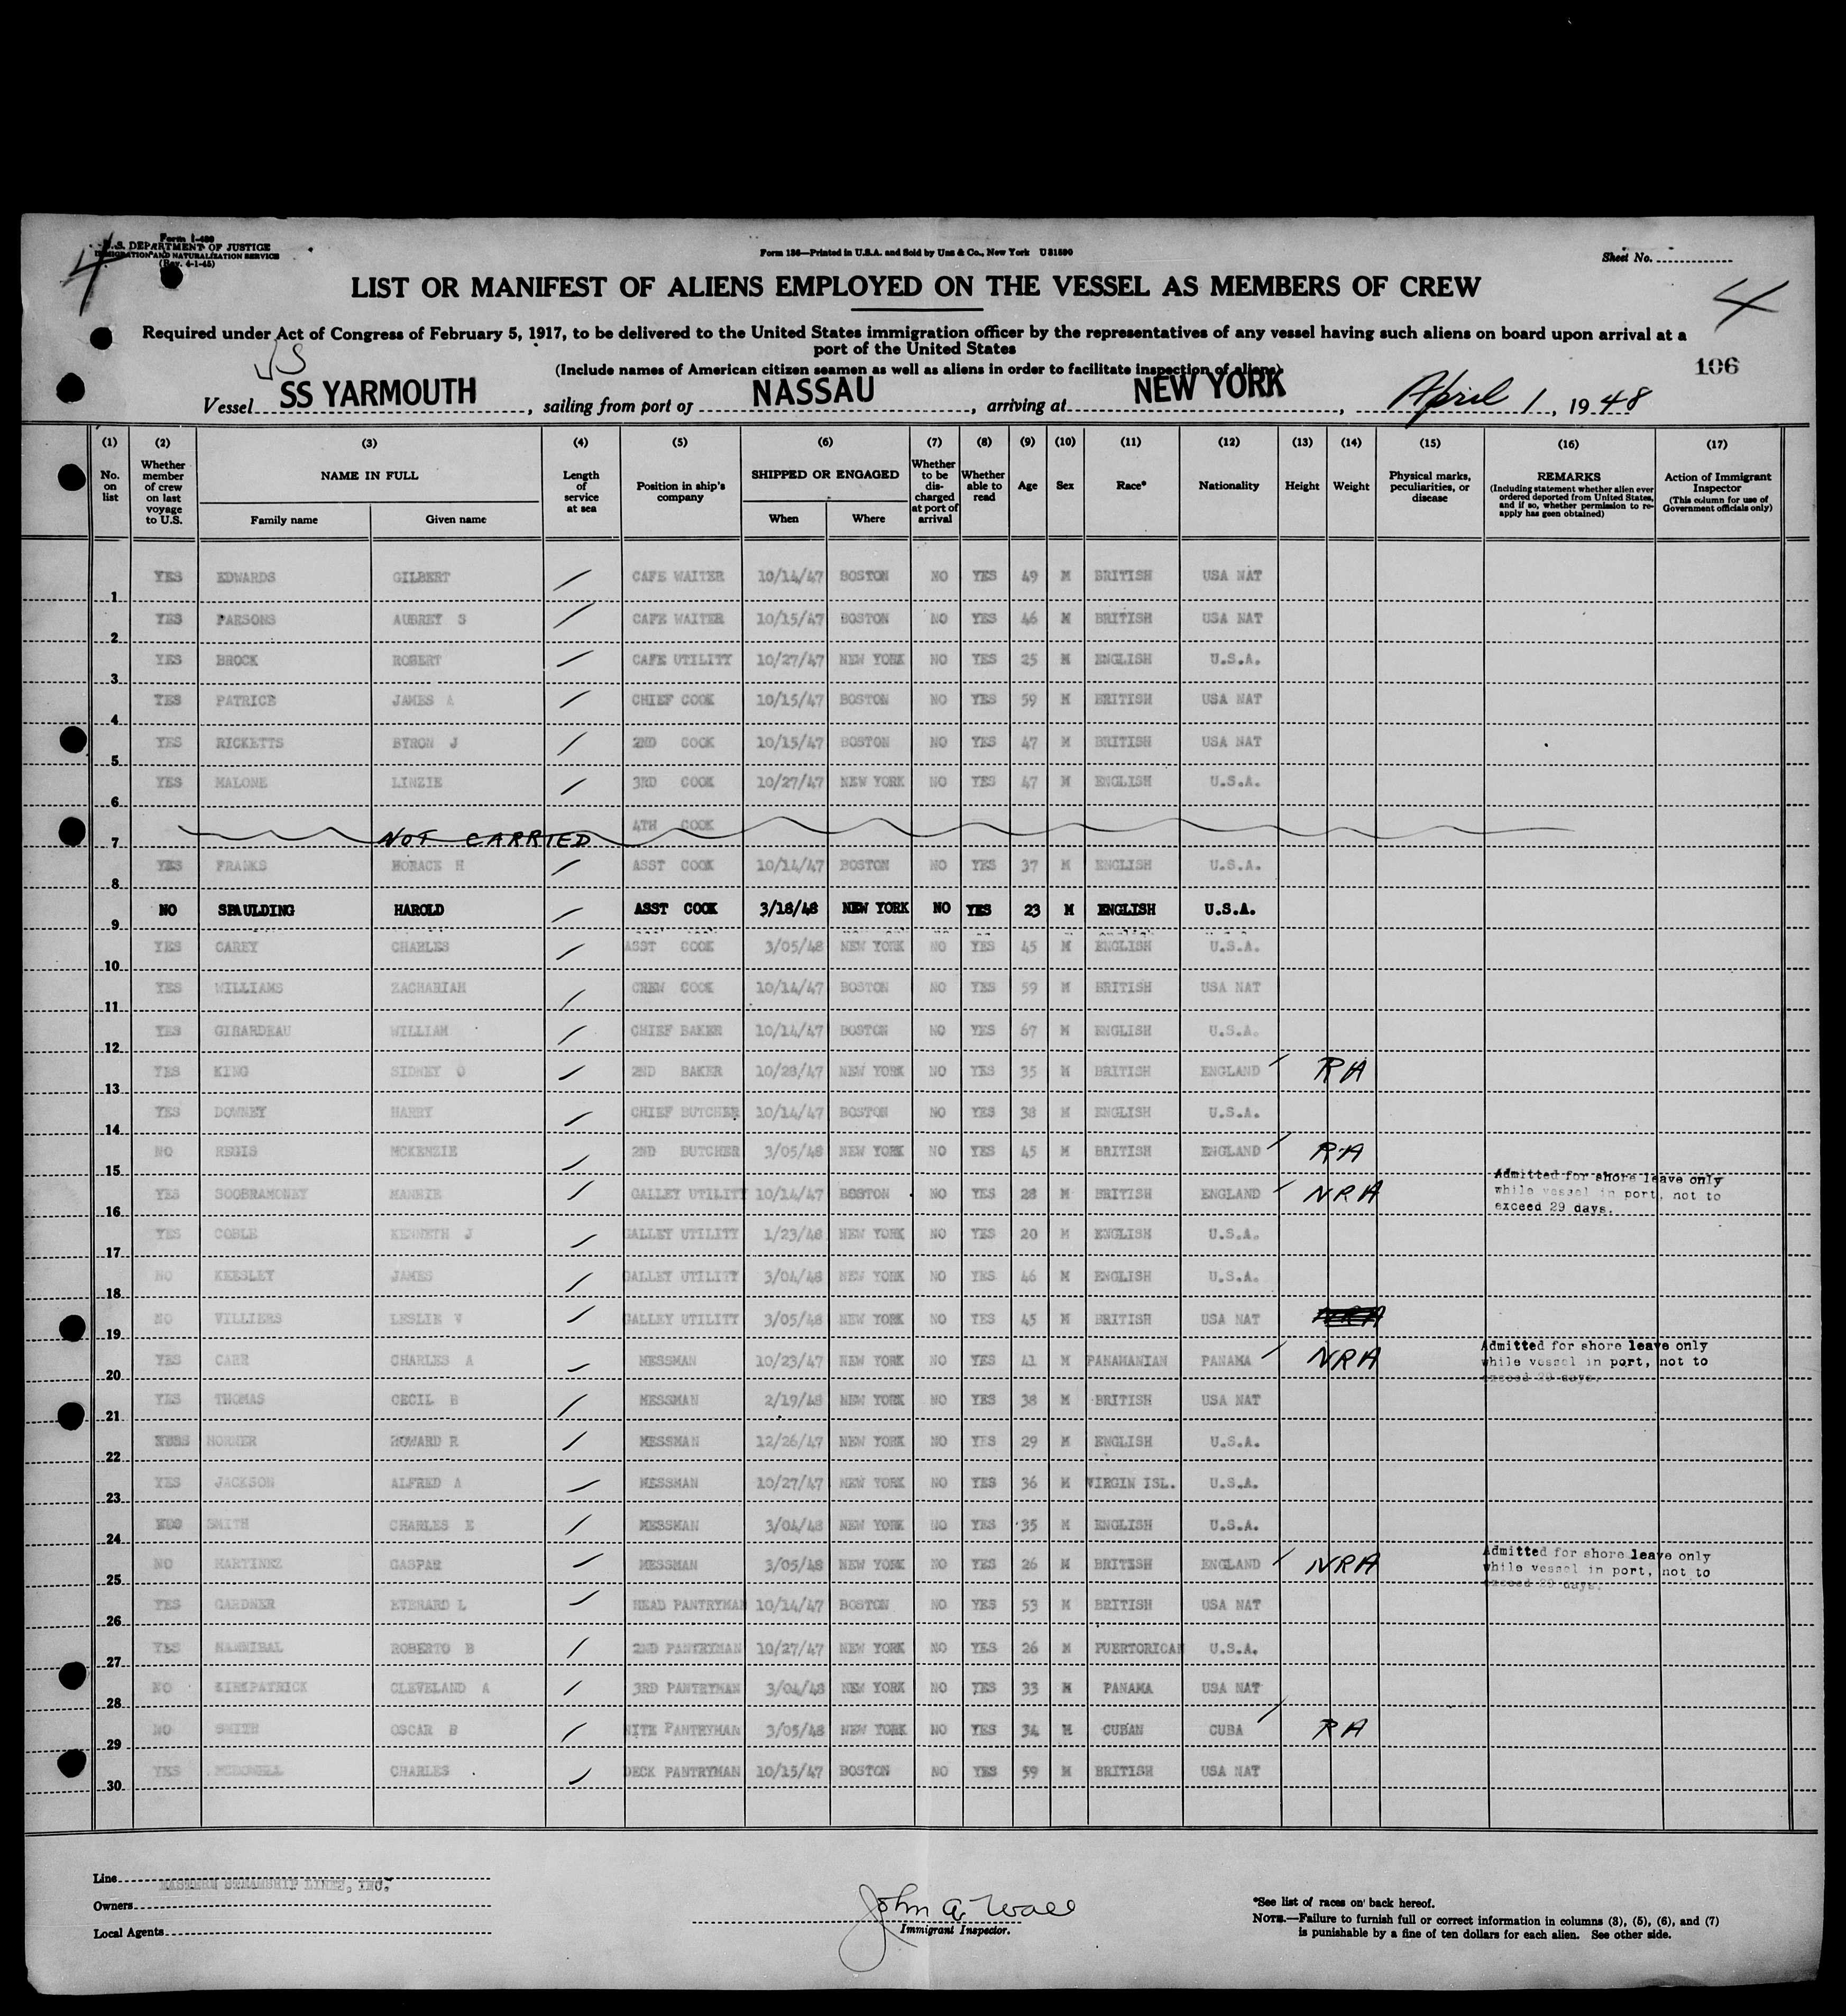 4
Form I-480
U.S. DEPARTMENT OF JUSTICE
IMMIGRATION AND NATURALIZATION SERVICE
(Rev. 4-1-45)
Form 136—Printed in U.S.A. and Sold by Unz & Co., New York U 31590
Sheet No.
LIST OR MANIFEST OF ALIENS EMPLOYED ON THE VESSEL AS MEMBERS OF CREW
4
Required under Act of Congress of February 5, 1917, to be delivered to the United States immigration officer by the representatives of any vessel having such aliens on board upon arrival at a
port of the United States
(Include names of American citizen seamen as well as aliens in order to facilitate inspection of aliens)
106
Vessel SS YARMOUTH, sailing from port of NASSAU, arriving at NEW YORK, April 1, 1948
(1) (2) (3) (4) (5) (6) (7) (8) (9) (10) (11) (12) (13) (14) (15) (16) (17)
No. on list
Whether member of crew on last voyage to U.S.
NAME IN FULL
Family name
Given name
Length of service at sea
Position in ship's company
SHIPPED OR ENGAGED
When
Where
Whether to be discharged at port of arrival
Whether able to read
Age
Sex
Race*
Nationality
Height
Weight
Physical marks, peculiarities, or disease
REMARKS
(Including statement whether alien ever ordered deported from United States, and if so, whether permission to re-apply has geen obtained)
Action of Immigrant Inspector
(This column for use of Government officials only)
1 YES EDWARDS GILBERT CAFE WAITER 10/14/47 BOSTON NO YES 49 M BRITISH USA NAT
2 YES PARSONS AUBREY S CAFE WAITER 10/15/47 BOSTON NO YES 46 M BRITISH USA NAT
3 YES BROCK ROBERT CAFE UTILITY 10/27/47 NEW YORK NO YES 25 M ENGLISH U.S.A.
4 YES PATRICE JAMES A CHIEF COOK 10/15/47 BOSTON NO YES 59 M BRITISH USA NAT
5 YES RICKETTS BYRON J 2ND COOK 10/15/47 BOSTON NO YES 47 M BRITISH USA NAT
6 YES MALONE LINZIE 3RD COOK 10/27/47 NEW YORK NO YES 47 M ENGLISH U.S.A.
7 NOT CARRIED 4TH COOK
8 YES FRANKS HORACE H ASST COOK 10/14/47 BOSTON NO YES 37 M ENGLISH U.S.A.
9 NO SPAULDING HAROLD ASST COOK 3/18/48 NEW YORK NO YES 23 M ENGLISH U.S.A.
10 YES CAREY CHARLES ASST COOK 3/05/48 NEW YORK NO YES 45 M ENGLISH U.S.A.
11 YES WILLIAMS ZACHARIAH CREW COOK 10/14/47 BOSTON NO YES 59 M BRITISH USA NAT
12 YES GIRARDEAU WILLIAM CHIEF BAKER 10/14/47 BOSTON NO YES 67 M ENGLISH U.S.A.
13 YES KING SIDNEY O 2ND BAKER 10/28/47 NEW YORK NO YES 35 M BRITISH ENGLAND RA
14 YES DOWNEY HARRY CHIEF BUTCHER 10/14/47 BOSTON NO YES 38 M ENGLISH U.S.A.
15 NO REGIS MCKENZIE 2ND BUTCHER 3/05/48 NEW YORK NO YES 45 M BRITISH ENGLAND RA
16 YES SOOBRAMONEY MANNIE GALLEY UTILITY 10/14/47 BOSTON NO YES 28 M BRITISH ENGLAND NRA Admitted for shore leave only while vessel in port, not to exceed 29 days.
17 YES COBLE KENNETH J GALLEY UTILITY 1/23/48 NEW YORK NO YES 20 M ENGLISH U.S.A.
18 NO KEESLEY JAMES GALLEY UTILITY 3/04/48 NEW YORK NO YES 46 M ENGLISH U.S.A.
19 NO VILLIERS LESLIE V GALLEY UTILITY 3/05/48 NEW YORK NO YES 45 M BRITISH USA NAT NRA
20 YES CARR CHARLES A MESSMAN 10/23/47 NEW YORK NO YES 41 M PANAMANIAN PANAMA NRA Admitted for shore leave only while vessel in port, not to exceed 29 days.
21 YES THOMAS CECIL B MESSMAN 2/19/48 NEW YORK NO YES 38 M BRITISH USA NAT
22 HORNER HOWARD R MESSMAN 12/26/47 NEW YORK NO YES 29 M ENGLISH U.S.A.
23 YES JACKSON ALFRED A MESSMAN 10/27/47 NEW YORK NO YES 36 M VIRGIN ISL. U.S.A.
24 SMITH CHARLES E MESSMAN 3/04/48 NEW YORK NO YES 35 M ENGLISH U.S.A.
25 NO MARTINEZ GASPAR MESSMAN 3/05/48 NEW YORK NO YES 26 M BRITISH ENGLAND NRA Admitted for shore leave only while vessel in port, not to exceed 29 days.
26 YES GARDNER EVERARD L HEAD PANTRYMAN 10/14/47 BOSTON NO YES 53 M BRITISH USA NAT
27 YES HANNIBAL ROBERTO B 2ND PANTRYMAN 10/27/47 NEW YORK NO YES 26 M PUERTORICAN U.S.A.
28 NO KIRKPATRICK CLEVELAND A 3RD PANTRYMAN 3/04/48 NEW YORK NO YES 33 M PANAMA USA NAT
29 NO SMITH OSCAR B NITE PANTRYMAN 3/05/48 NEW YORK NO YES 34 M CUBAN CUBA RA
30 YES CHARLES DECK PANTRYMAN 10/15/47 BOSTON NO YES 59 M BRITISH USA NAT
Line EASTERN STEAMSHIP LINES, INC.
Owners
Local Agents
John A. Wall
Immigrant Inspector.
*See list of races on back hereof.
NOTE.—Failure to furnish full or correct information in columns (3), (5), (6), and (7)
is punishable by a fine of ten dollars for each alien. See other side.